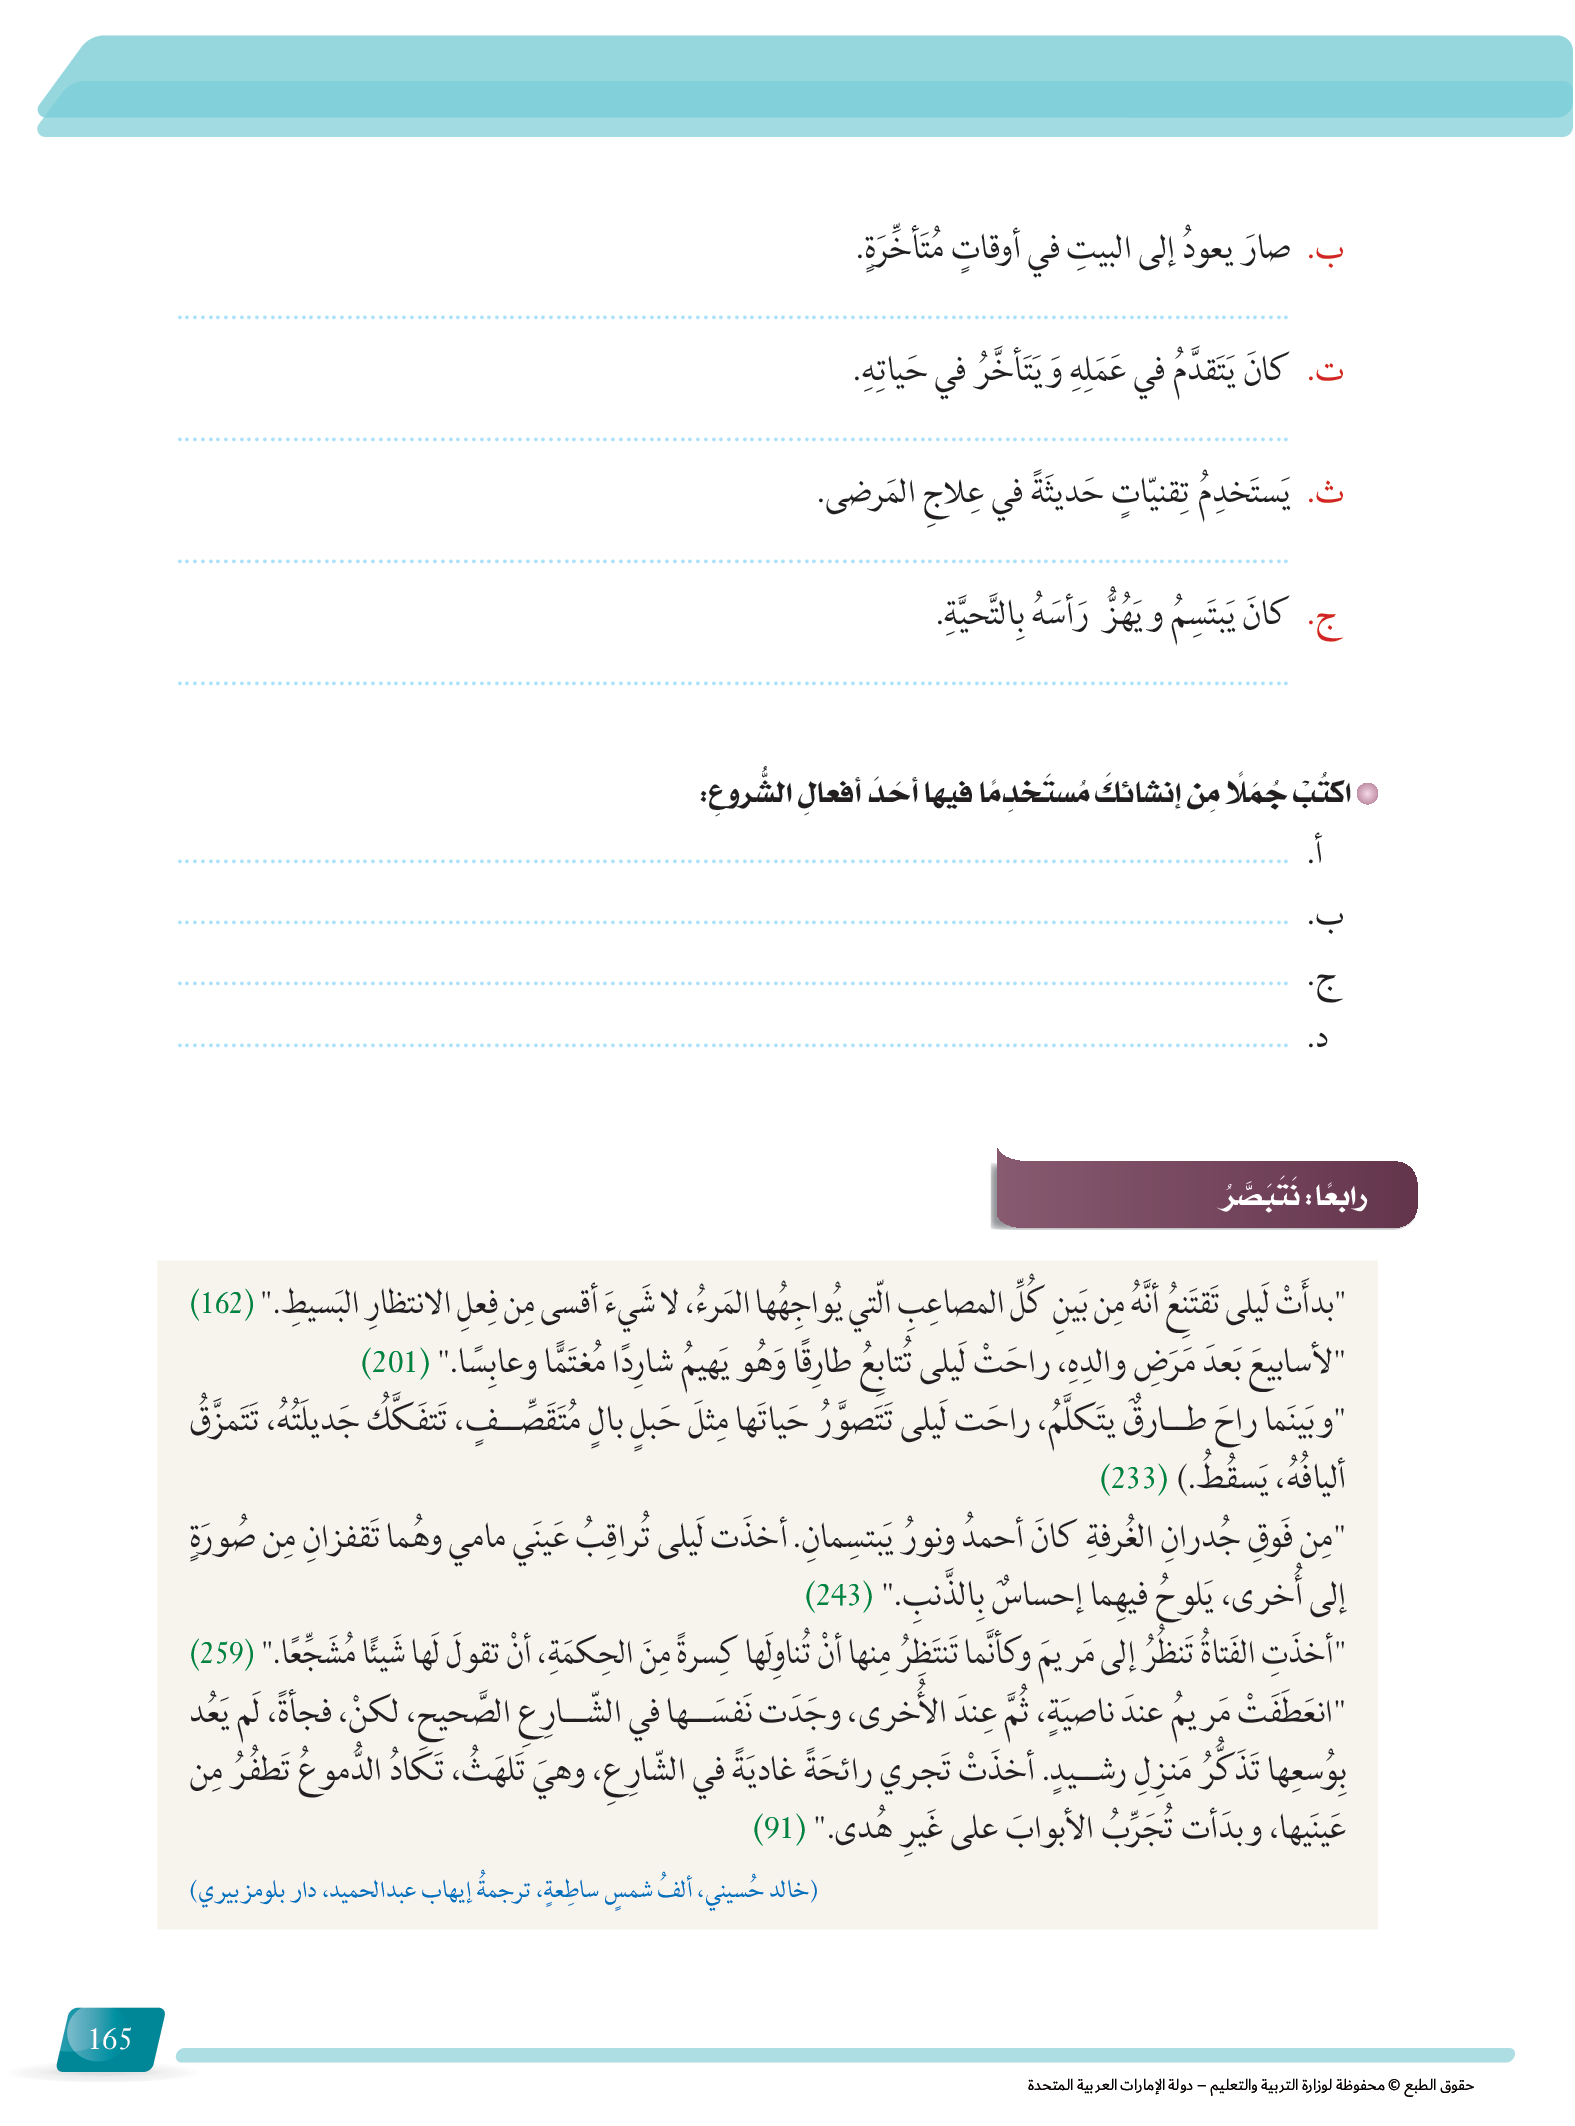 ب. صارَ يعودُ إلى البيتِ في أوقاتٍ مُتَأخِّرَةٍ.
ت. كانَ يَتَقدَّمُ في عَمَلِهِ وَيَتَأخَّرُ في حَياتِهِ.
ث. يَستَخدِمُ تِقنيّاتٍ حَديثَةً في عِلاجِ المَرضى.
ج. كانَ يَبتَسِمُ ويَهُزُّ رَأسَهُ بِالتَّحيَّةِ.
اكتُبْ جُمَلًا مِن إنشائكَ مُستَخدِمًا فيها أحَدَ أفعالِ الشُّروعِ:
أ.
ب.
ج.
د.
رابعًا: نَتَبَصَّرُ
"بدأَتْ لَيلى تَقتَنِعُ أنَّهُ مِن بَينِ كُلِّ المصاعِبِ الّتي يُواجِهُها المَرءُ، لا شَيءَ أقسى مِن فِعلِ الانتظارِ البَسيطِ." (162)
"لأسابيعَ بَعدَ مَرَضِ والدِهِ، راحَتْ لَيلى تُتابِعُ طارِقًا وَهُو يَهيمُ شارِدًا مُغتَمًّا وعابِسًا." (201)
"وبَينَما راحَ طــارقٌ يتَكلَّمُ، راحَت لَيلى تَتَصوَّرُ حَياتَها مِثلَ حَبلٍ بالٍ مُتَقَصِّــفٍ، تَتفَكَّكُ جَديلَتُهُ، تَتَمزَّقُ
أليافُهُ، يَسقُطُ.) (233)
"مِن فَوقِ جُدرانِ الغُرفةِ كانَ أحمدُ ونورُ يَبتسِمانِ. أخذَت لَيلى تُراقِبُ عَينَي مامي وهُما تَقفزانِ مِن صُورَةٍ
إلى أُخرى، يَلوحُ فيهِما إحساسٌ بِالذَّنبِ." (243)
"أخذَتِ الفَتاةُ تَنظُرُ إلى مَريمَ وكأنَّما تَنتَظِرُ مِنها أنْ تُناوِلَها كِسرةً مِنَ الحِكمَةِ، أنْ تقولَ لَها شَيئًا مُشَجِّعًا." (259)
"انعَطَفَتْ مَريمُ عندَ ناصيَةٍ، ثُمَّ عِندَ الأُخرى، وجَدَت نَفسَــها في الشّــارِعِ الصَّحيحِ، لكنْ، فجأةً، لَم يَعُد
بِوُسعِها تَذَكُّرُ مَنزِلِ رشــيدٍ. أخذَتْ تَجري رائحَةً غاديَةً في الشّارِعِ، وهيَ تَلهَثُ، تَكَادُ الدُّموعُ تَطفُرُ مِن
عَينَيها، وبدَأت تُجَرِّبُ الأبوابَ على غَيرِ هُدى." (91)
(خالد حُسيني، ألفُ شمسٍ ساطِعةٍ، ترجمةُ إيهاب عبدالحميد، دار بلومزبيري)
165
حقوق الطبع © محفوظة لوزارة التربية والتعليم – دولة الإمارات العربية المتحدة